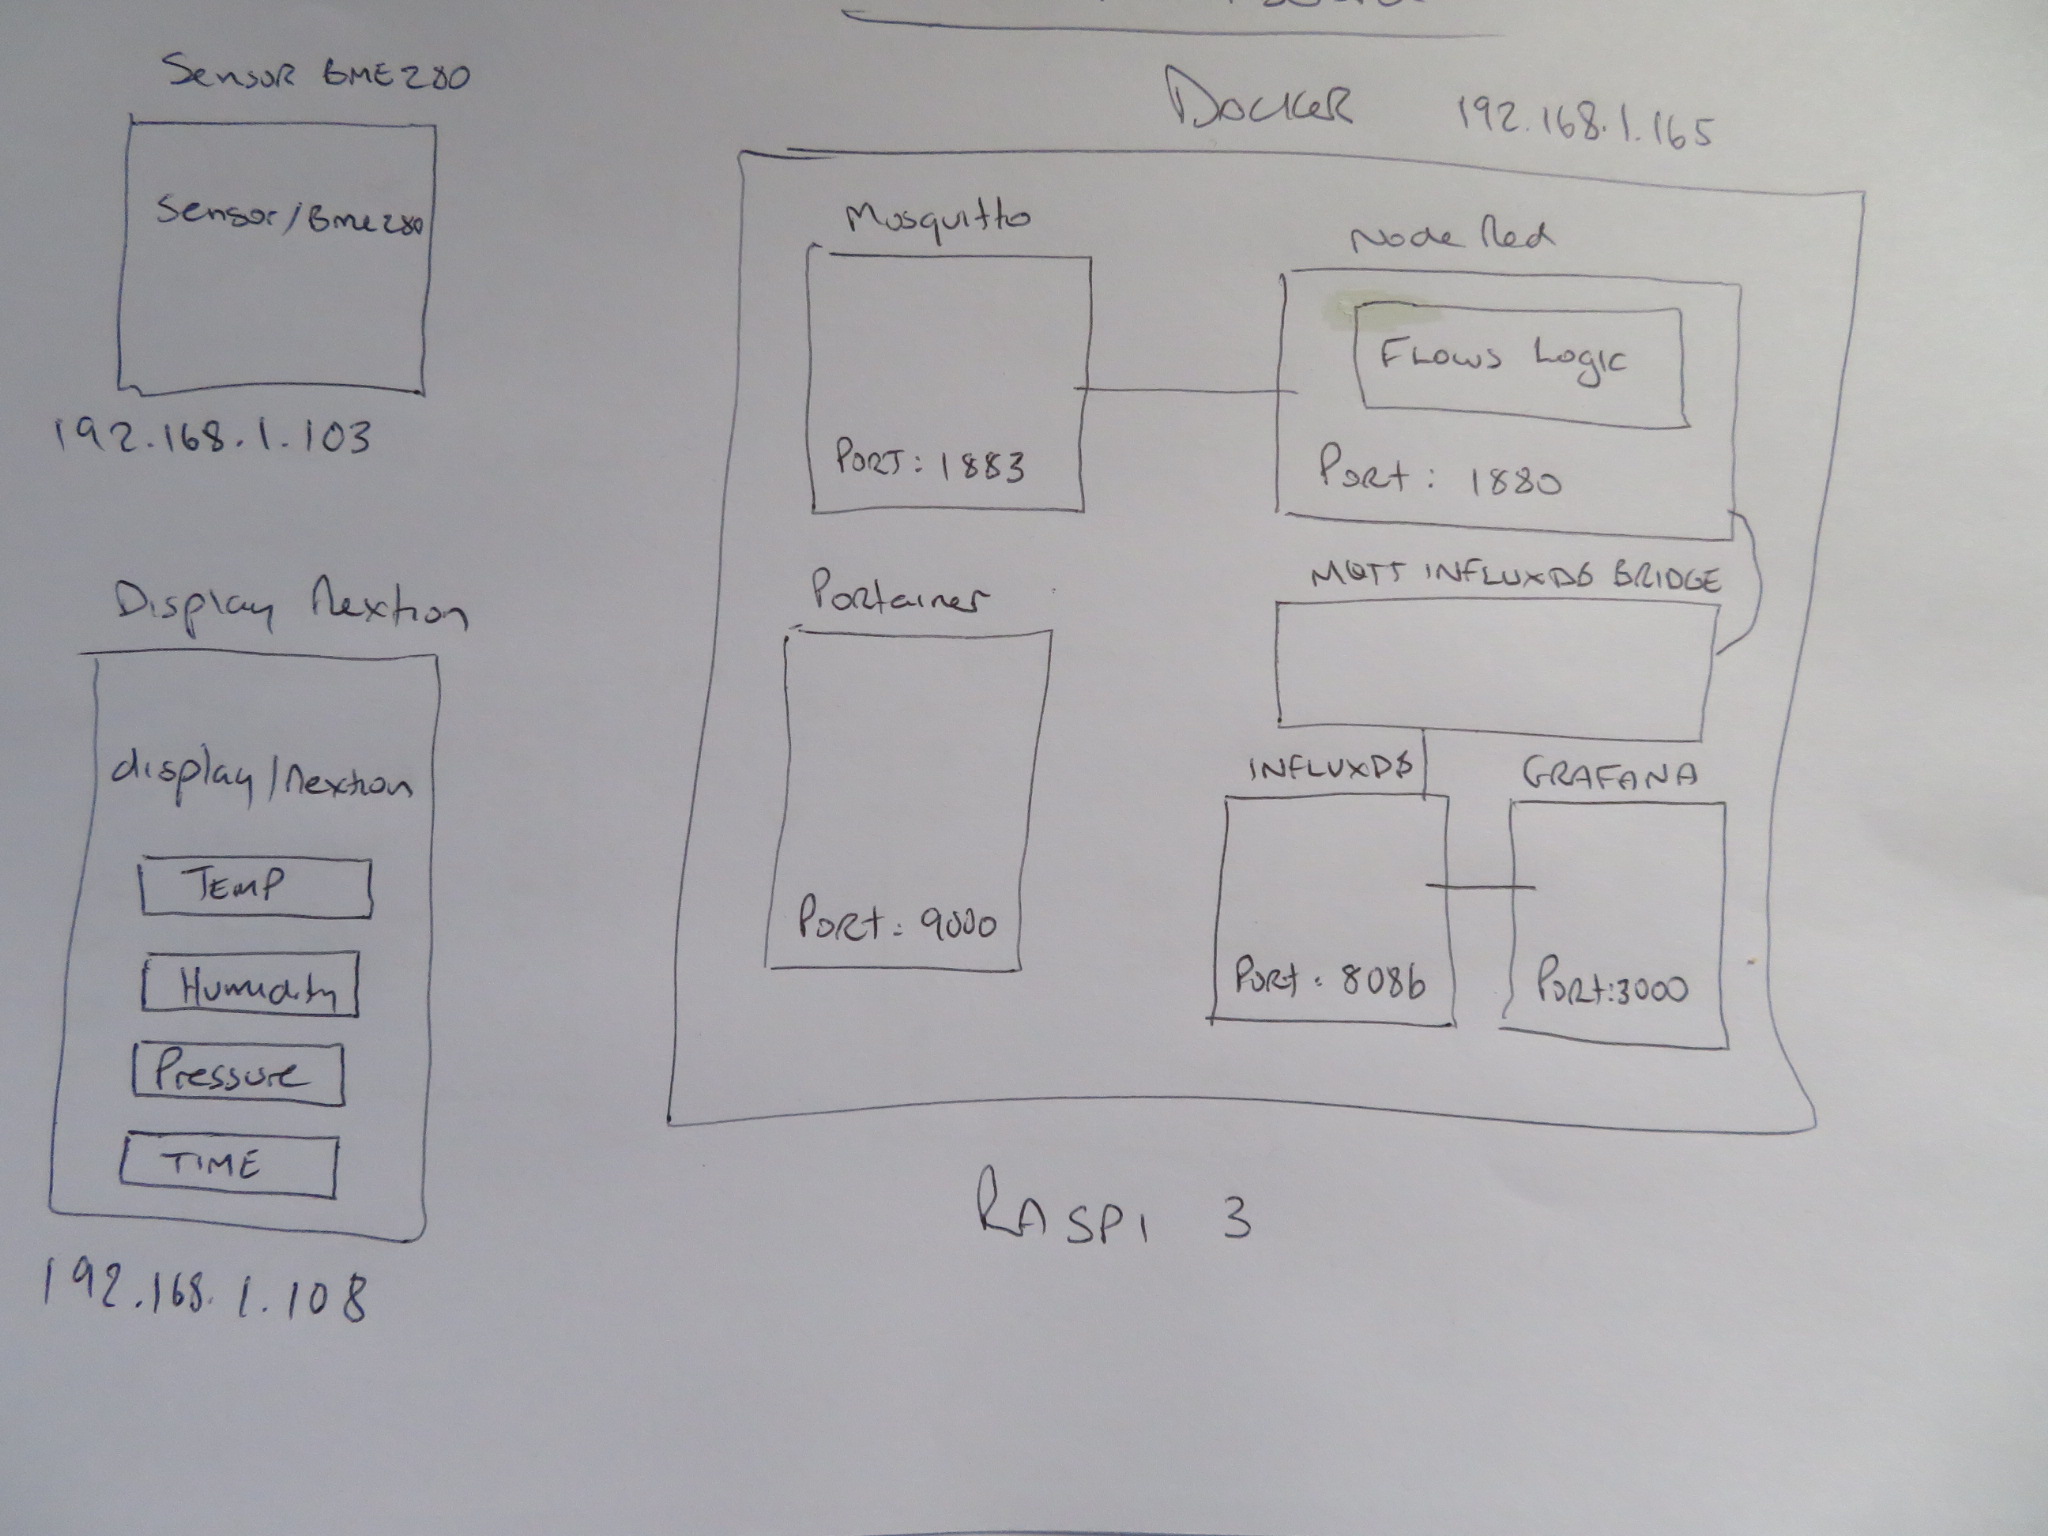 Sensor BME280
Sensor/Bme280
192.168.1.103
Display Nextion
display/nextion
TEMP
Humidity
Pressure
TIME
192.168.1.108
Docker 192.168.1.165
Mosquitto
Port: 1883
Node Red
Flows Logic
Port: 1880
Portainer
Port: 9000
MQTT INFLUXDB BRIDGE
INFLUXDB
Port: 8086
GRAFANA
Port:3000
RASPI 3